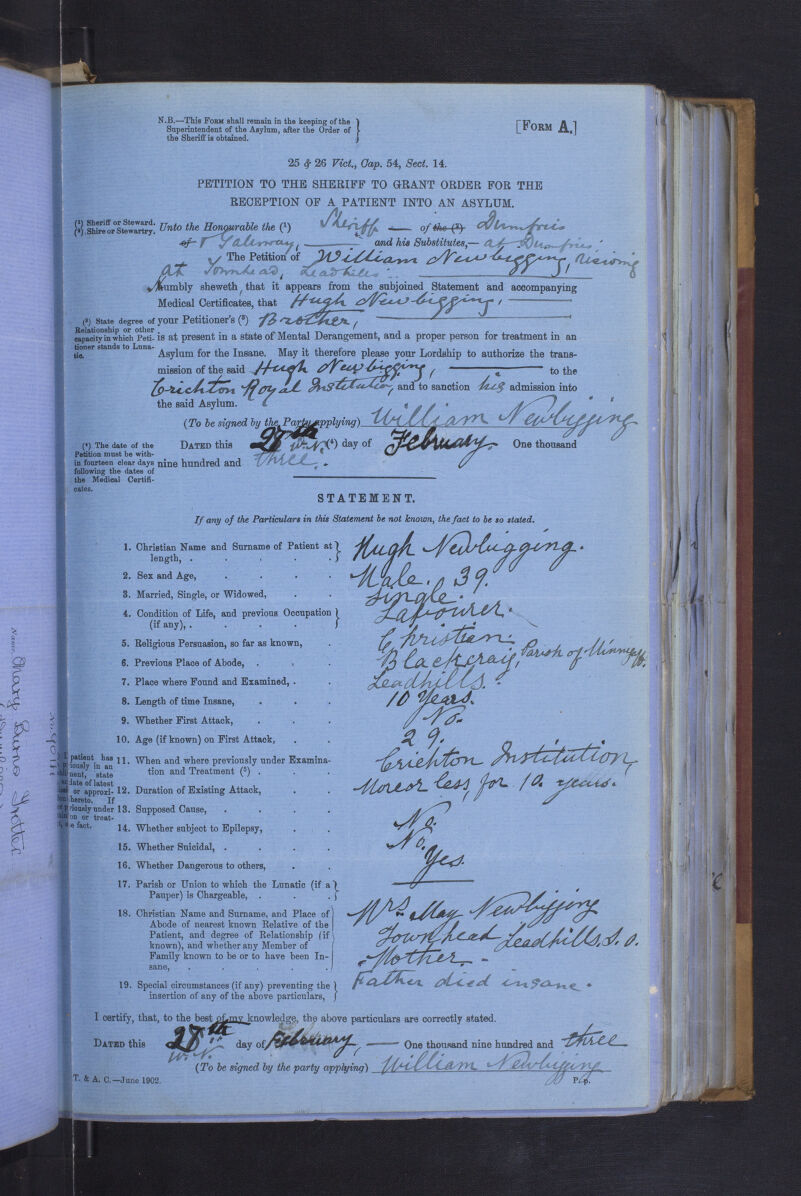 N.B.—This Form shall remain in the keeping of the
Superintendent of the Asylum, after the Order of
the Sheriff is obtained.
[Form A.]
25 & 26 Vict., Cap. 54, Sect. 14.
PETITION TO THE SHERIFF TO GRANT ORDER FOR THE
RECEPTION OF A PATIENT INTO AN ASYLUM.
(1) Sheriff or Steward.
(2) Shire or Stewartry.
Unto the Honourable the (1) Sheriff — of the (2) Dumfries
of & Galloway, and his Substitutes,— at Dumfries.
The Petition of William Newbigging, residing
at Townhead, Leadhills
Humbly sheweth, that it appears from the subjoined Statement and accompanying
Medical Certificates, that Hugh Newbigging,
(3) State degree of
Relationship or other
capacity in which Peti-
tioner stands to Luna-
tic.
your Petitioner's (3) Brother,
is at present in a state of Mental Derangement, and a proper person for treatment in an
Asylum for the Insane. May it therefore please your Lordship to authorize the trans-
mission of the said Hugh Newbigging, to the
Crichton Royal Institution, and to sanction his admission into
the said Asylum.
(To be signed by the Party applying) William Newbigging
(4) The date of the
Petition must be with-
in fourteen clear days
following the dates of
the Medical Certifi-
cates.
Dated this 28th W.N. (4) day of February. One thousand
nine hundred and three.
STATEMENT.
If any of the Particulars in this Statement be not known, the fact to be so stated.
1. Christian Name and Surname of Patient at
length, . Hugh Newbigging.
2. Sex and Age, Male. 39.
3. Married, Single, or Widowed, Single.
4. Condition of Life, and previous Occupation
(if any), . Labourer.
5. Religious Persuasion, so far as known, Christian.
6. Previous Place of Abode, . Blackcraig, Parish of Minnigaff.
7. Place where Found and Examined, . Leadhills.
8. Length of time Insane, 10 Years.
9. Whether First Attack, No.
10. Age (if known) on First Attack, 29.
patient has
iously in an
ment, state
date of latest
or approxi-
hereto. If
riously under
on or treat-
e fact.
11. When and where previously under Examina-
tion and Treatment (5) . Crichton Institution,
12. Duration of Existing Attack, More or less, for 10 years.
13. Supposed Cause,
14. Whether subject to Epilepsy, No.
15. Whether Suicidal, . No.
16. Whether Dangerous to others, Yes.
17. Parish or Union to which the Lunatic (if a
Pauper) is Chargeable, .
18. Christian Name and Surname, and Place of
Abode of nearest known Relative of the
Patient, and degree of Relationship (if
known), and whether any Member of
Family known to be or to have been In-
sane,
Mrs. May Newbigging
Townhead Leadhills. S. O.
Mother. -
19. Special circumstances (if any) preventing the
insertion of any of the above particulars,
Father died insane.
I certify, that, to the best of my knowledge, the above particulars are correctly stated.
Dated this 28th W.N. day of February, — One thousand nine hundred and three
(To be signed by the party applying) William Newbigging
T. & A. C.—June 1902.
P. p.